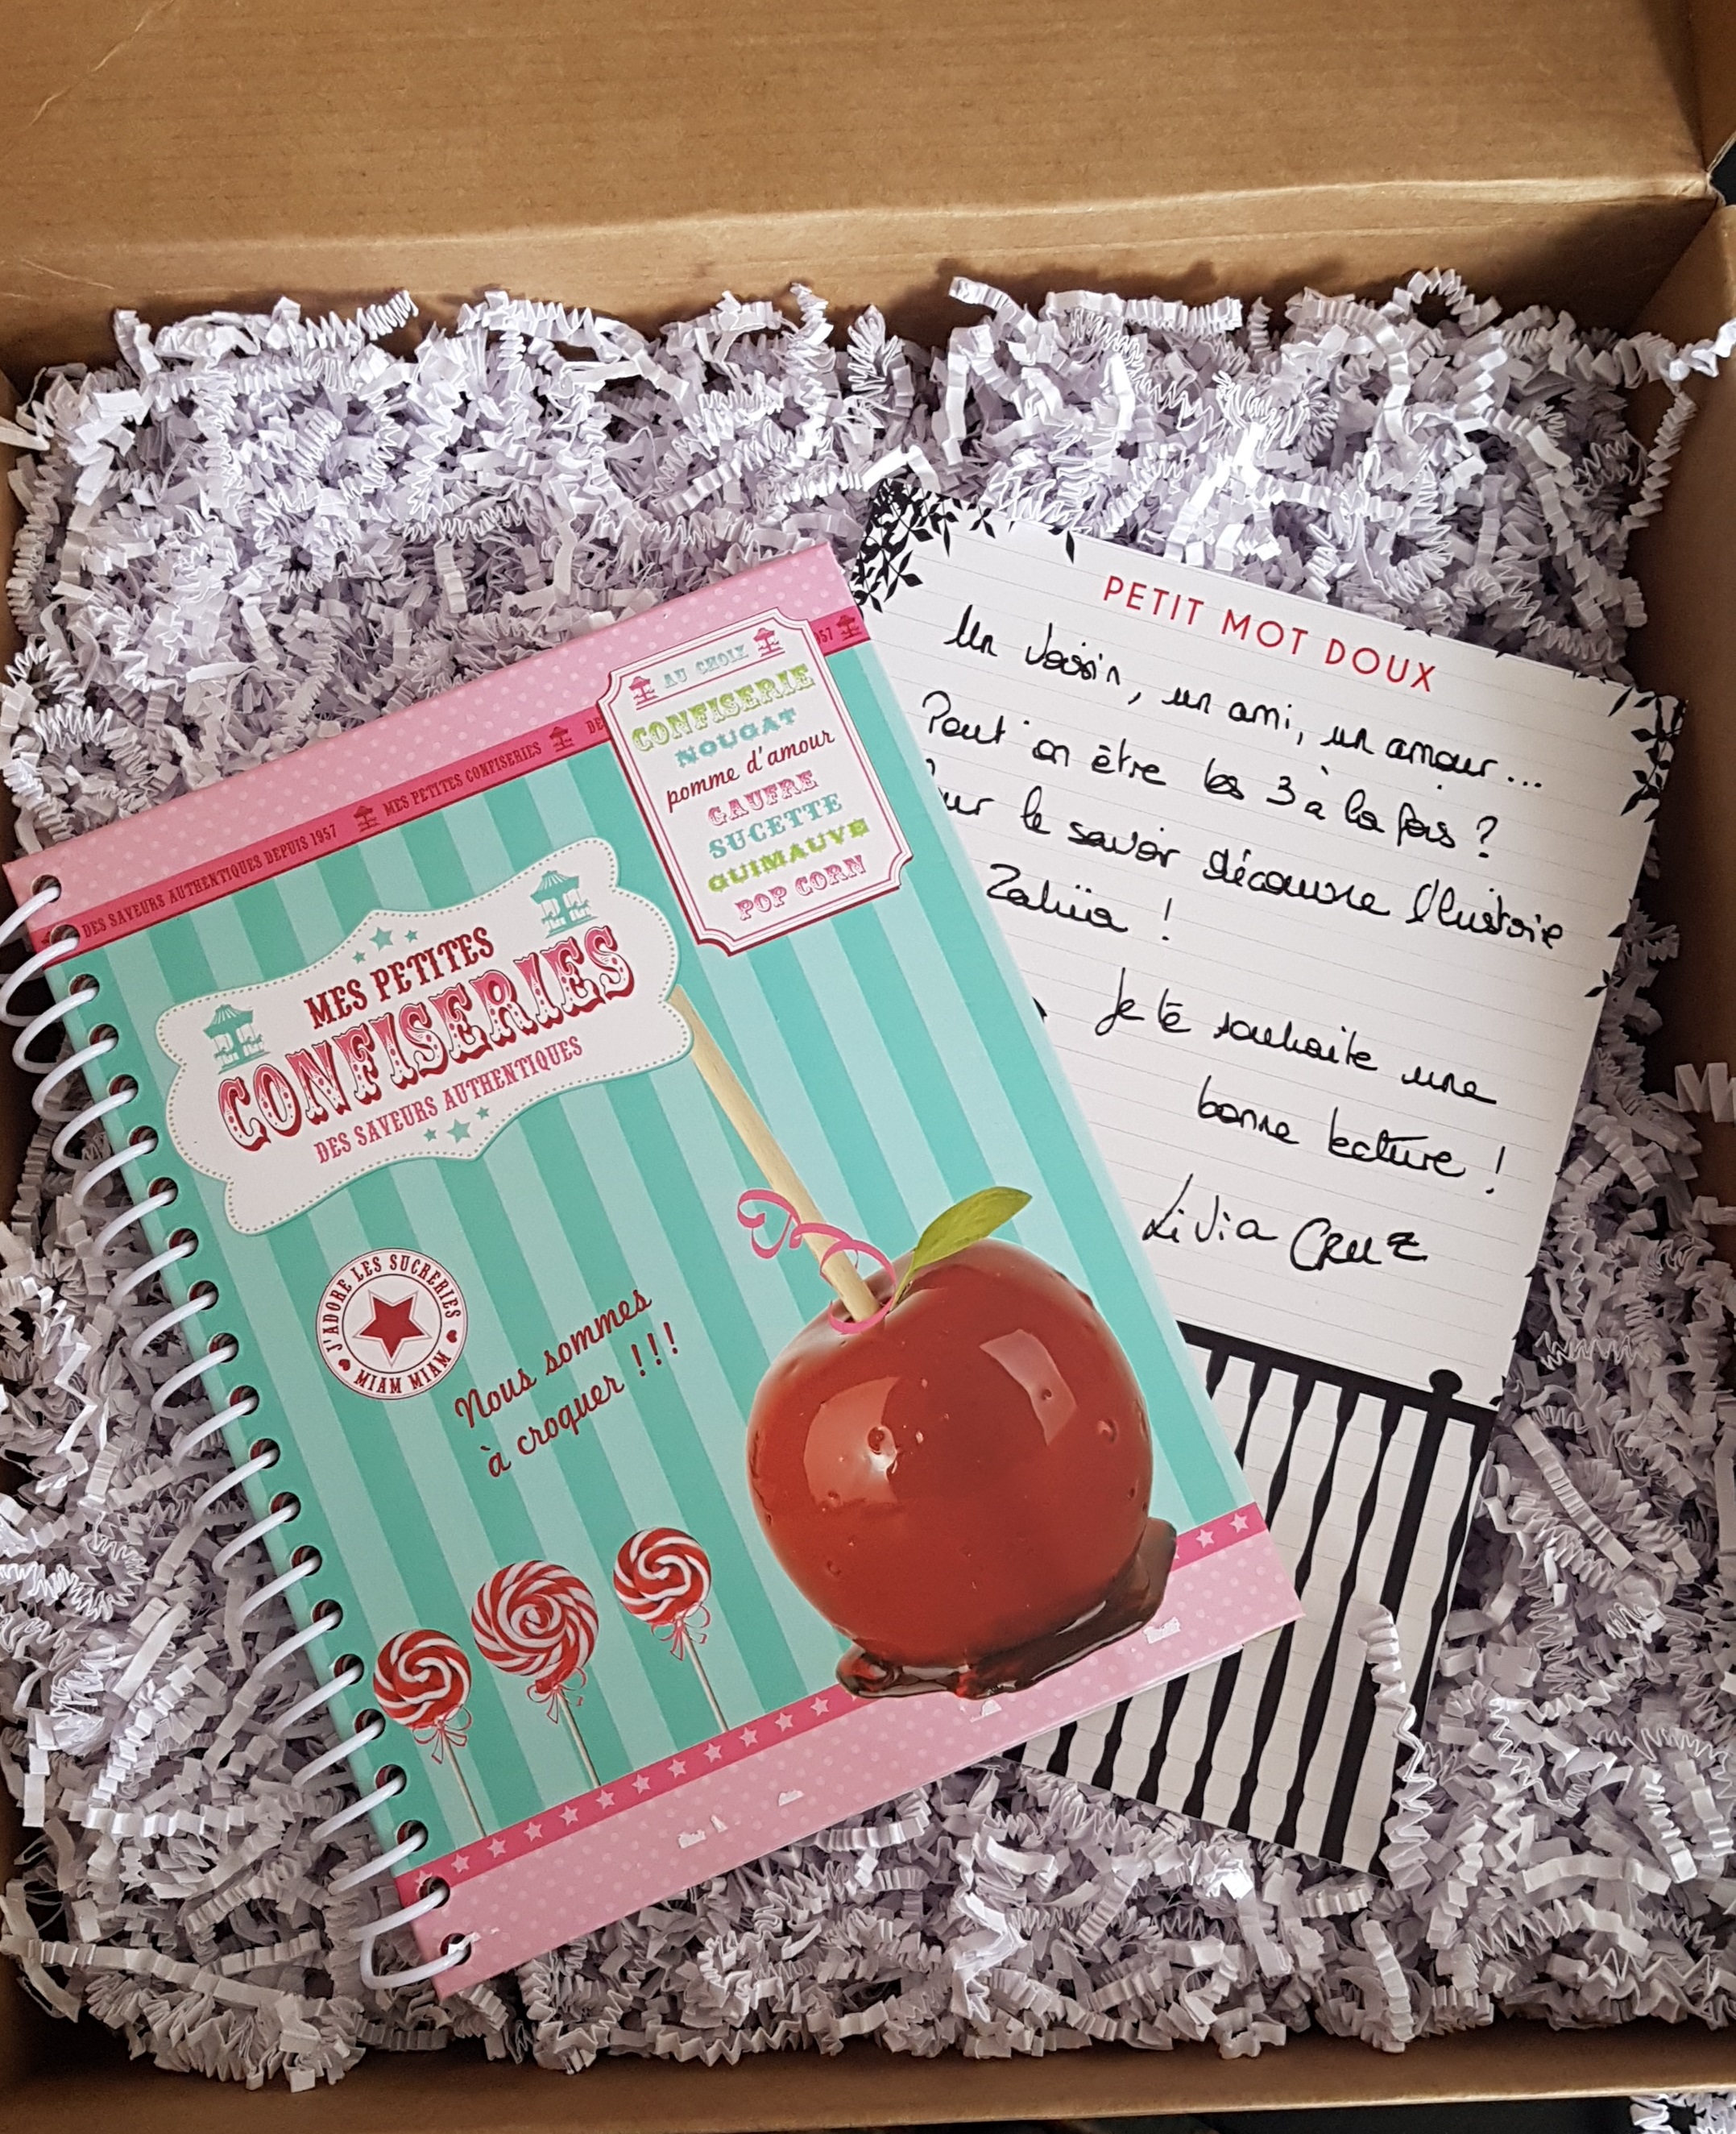 57
DES SAVEURS AUTHENTIQUES DEPUIS 1957 MES PETITES CONFISERIES DE
AU CHOIX
CONFISERIE
NOUGAT
pomme d'amour
GAUFRE
SUCETTE
GUIMAUVE
POP CORN
MES PETITES
CONFISERIES
DES SAVEURS AUTHENTIQUES
J'ADORE LES SUCRERIES
MIAM MIAM
Nous sommes
à croquer !!!
PETIT MOT DOUX
Un voisin, un ami, un amour...
Peut on être les 3 à la fois ?
ur le savoir découvre l'histoire
Zahiia !
Je te souhaite une
bonne lecture !
Livia CRUZ